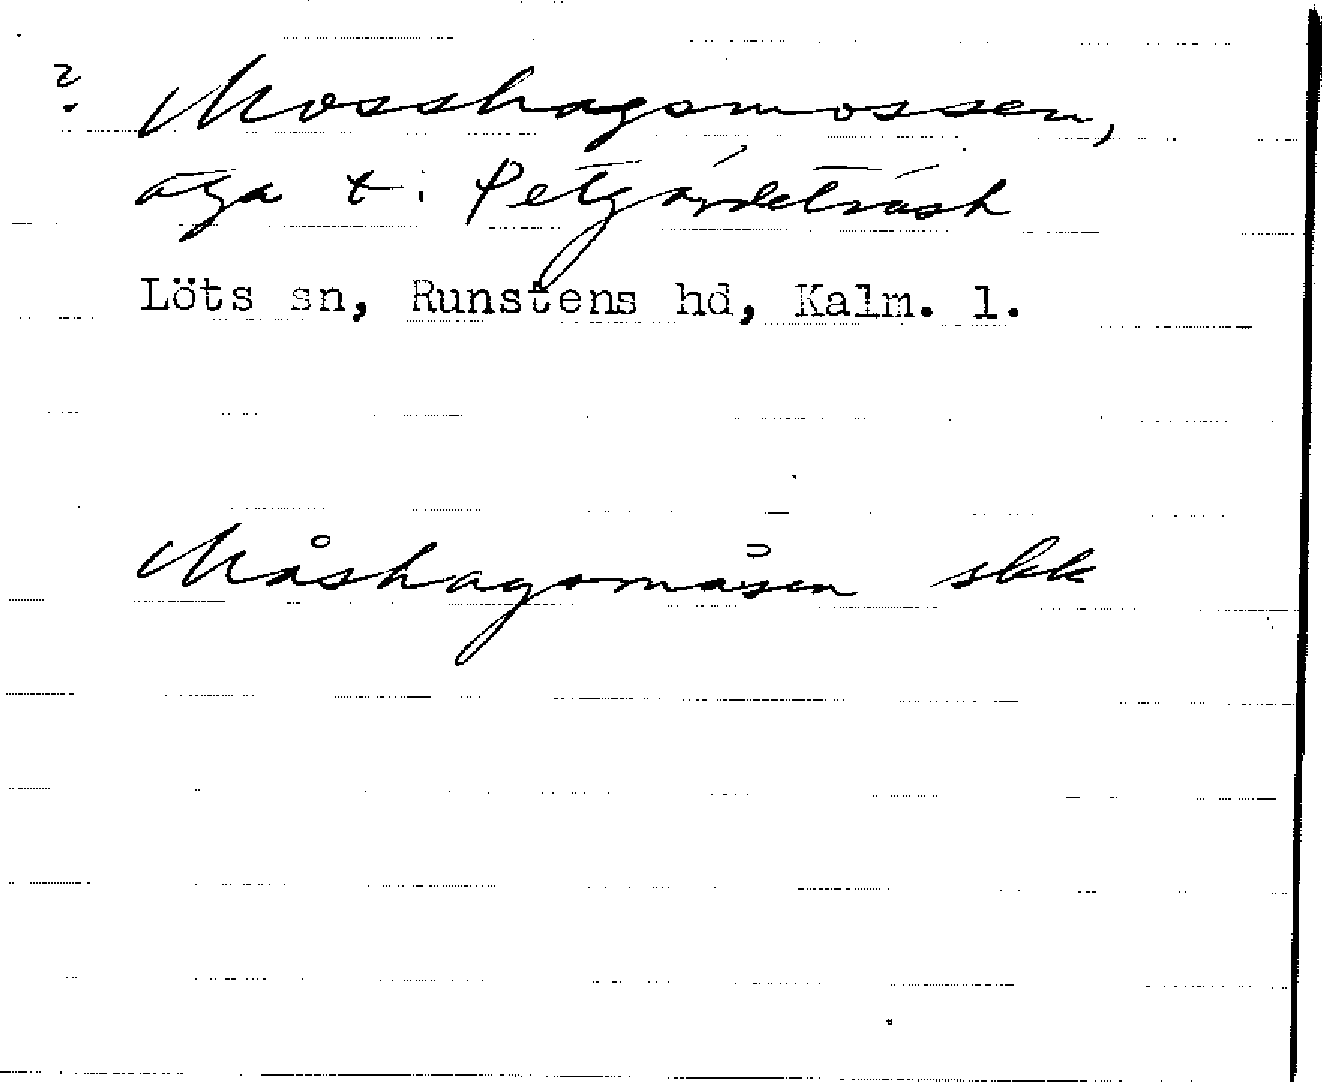 ? Mosshagsmossen,
äga t. Petgärdeträsk
Löts sn, Runstens hd, Kalm. l.
Måshagsmåsen skk